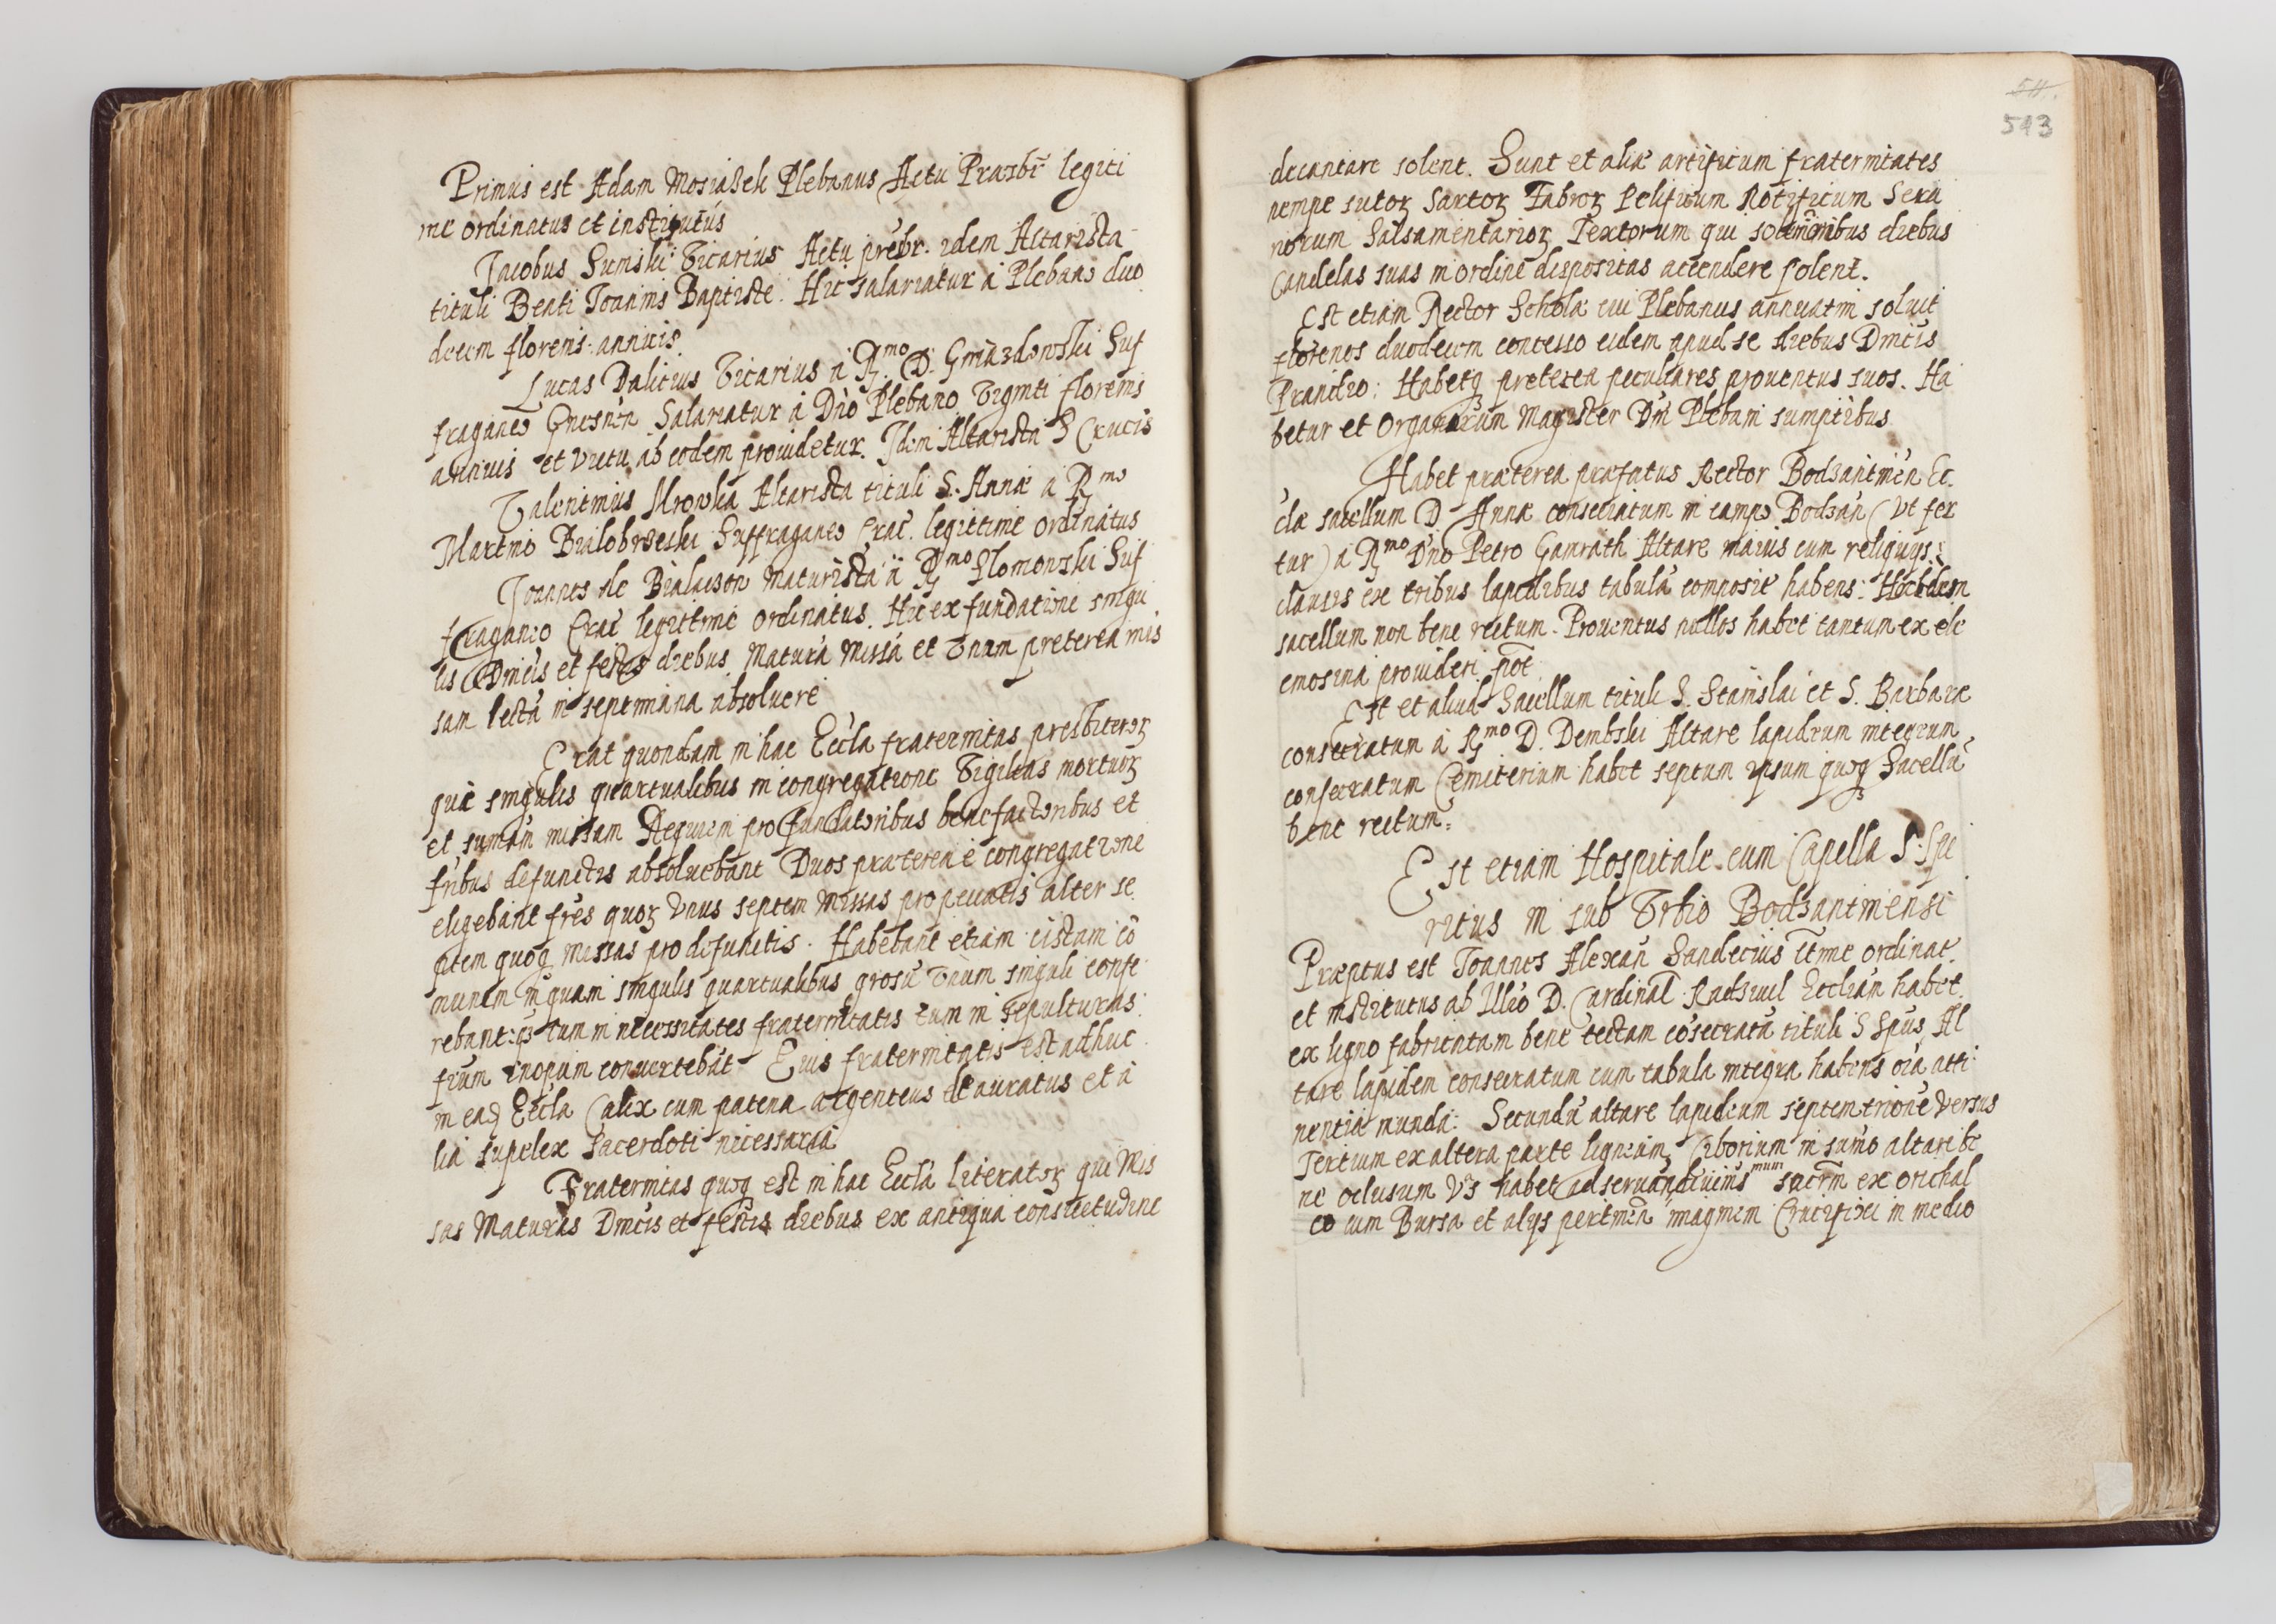 Primus est Adam Mosiaßek Plebanus Actu Præsbr̃ legiti
me ordinatus et institutus
Jacobus Sumski Vicarius Actu prebr. idem Altarista
tituli Beati Joannis Baptiste. Hic salariatur à Plebano duo
decem florenis annuis.
Lucas Dalicius Vicarius à R.mo D. Gniazdowski Suf
fraganeo Gnesnen Salariatur à Dño Plebano Viginti florenis
annuis et victu ab eodem prouidetur. Idem Altarista S Crucis
Valentinus Mrowka Altarista tituli S. Annæ à R.mo
Martino Bialobrzeski Suffraganeo Crac. legittime ordinatus
Joannes de Bialaczon Maturista à R.mo Slomowski Suf
fraganeo Crac legittime ordinatus. Hic ex fundatione singu
lis Dnicis et festis diebus Matura Missa et Vnam preterea mis
sam lecta in septimana absoluere
Erat quondam in hac Eccla fraternitas presbiteroꝝ
quæ singulis quartualibus in congregatione Vigilias mortuoꝝ
et sumam missam Requiem pro fundatoribus benefactoribus et
fribus defunctis absoluebant Duos præterea è congregatione
eligebant fres quoꝝ Vnus septem Missas pro peccatis alter se
ptem quoq missas pro defunctis. Habebant etiam cistam cō
munem in quam singulis quartualibus grosū Vnum singuli confe
rebant: qs tum in necessitates fraternitatis tum in sepulturas
frum inopum conuertebāt Eius fraternitatis est adhuc
in ead Eccla Calix cum patena argenteus deauratus et a
lia supelex Sacerdoti necessaria
Fraternitas quoq est in hac Eccla literatoꝝ qui Mis
sas Maturas Dnicis et festis diebus ex antiqua consuetudine
54.
543
decantare solent. Sunt et aliæ artificum fraternitates
nempe sutoꝝ Sartoꝝ Fabroꝝ Pelificum Rotificum Sera
norum Salsamentarioꝝ Textorum qui solemnibus diebus
Candelas suas in ordine dispositas accendere solent.
Est etiam Rector Scholæ cui Plebanus annuatim soluit
florenos duodecim concesso eidem apud se diebus Dnicis
Prandio: Habetq preterea peculiares prouentus suos. Ha
betur et Organarum Magister Dni Plebani sumptibus
Habet præterea præfatus Rector Bodzantinen Ec.
clæ sacellum D. Annæ consecratum in campo Bodzan (Vt fer
tur) à R.mo Dño Petro Gamrath Altare maius cum reliquijs
clausis ex tribus lapidibus tabulā composite habens:
sacellum non bene rectum. Prouentus nullos habet tantum ex ele
emosina prouideri pōt
Est et aliud Sacellum tituli S. Stanislai et S. Barbaræ
consecratum à R.mo D. Dembski Altare lapideum integrum
consecratum Cemiterium habet septum ipsum quoq Sacellū
bene rectum.
Est etiam Hospitale cum Capella S. Spi
ritus in sub Vrbio Bodzantinensi
Præptus est Joannes Alexan̄ Sandecius ltme ordinat.
et institutus ab Illio D. Cardinal Radziuil Eccliam habet
ex ligno fabricatam bene tectam cōsecratā tituli S Spus, Al
tare lapidem consecratum cum tabula integra habens oīa atti
nentia munda: Secundū altare lapideum septemtrione Versus
Tertium ex altera parte ligneum, Ciborium in sum̄o altari be
ne oclusum Vs habet ad seruand mum sacrm ex orichal
co cum Bursa et alijs pertinen imaginem Crucifixi in medio